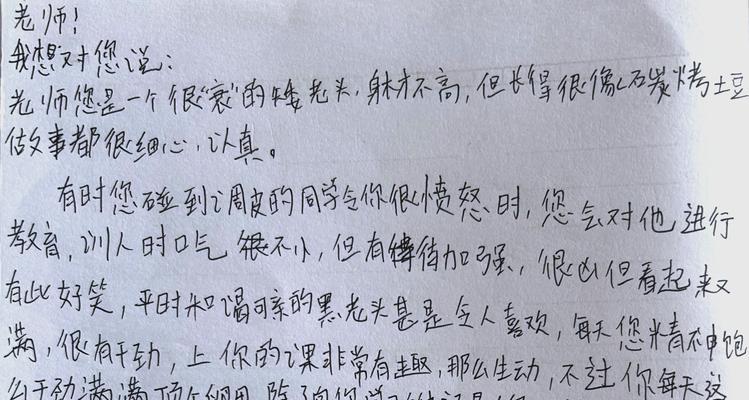 老师！
我想对您说：
老师您是一个很“衰”的矮老头，身材不高，但长得很像石炭烤土豆
做事都很细心，认真。
有时您碰到调皮的同学令你很愤怒时，您会对他进行
教育，训人时口气很不小，但有待加强，很凶但看起来又
有些好笑，平时和谒可亲的黑老头甚是令人喜欢，每天您精神饱
满，很有干劲，上你的课非常有趣，那么生动，不过你每天这
么干劲满满